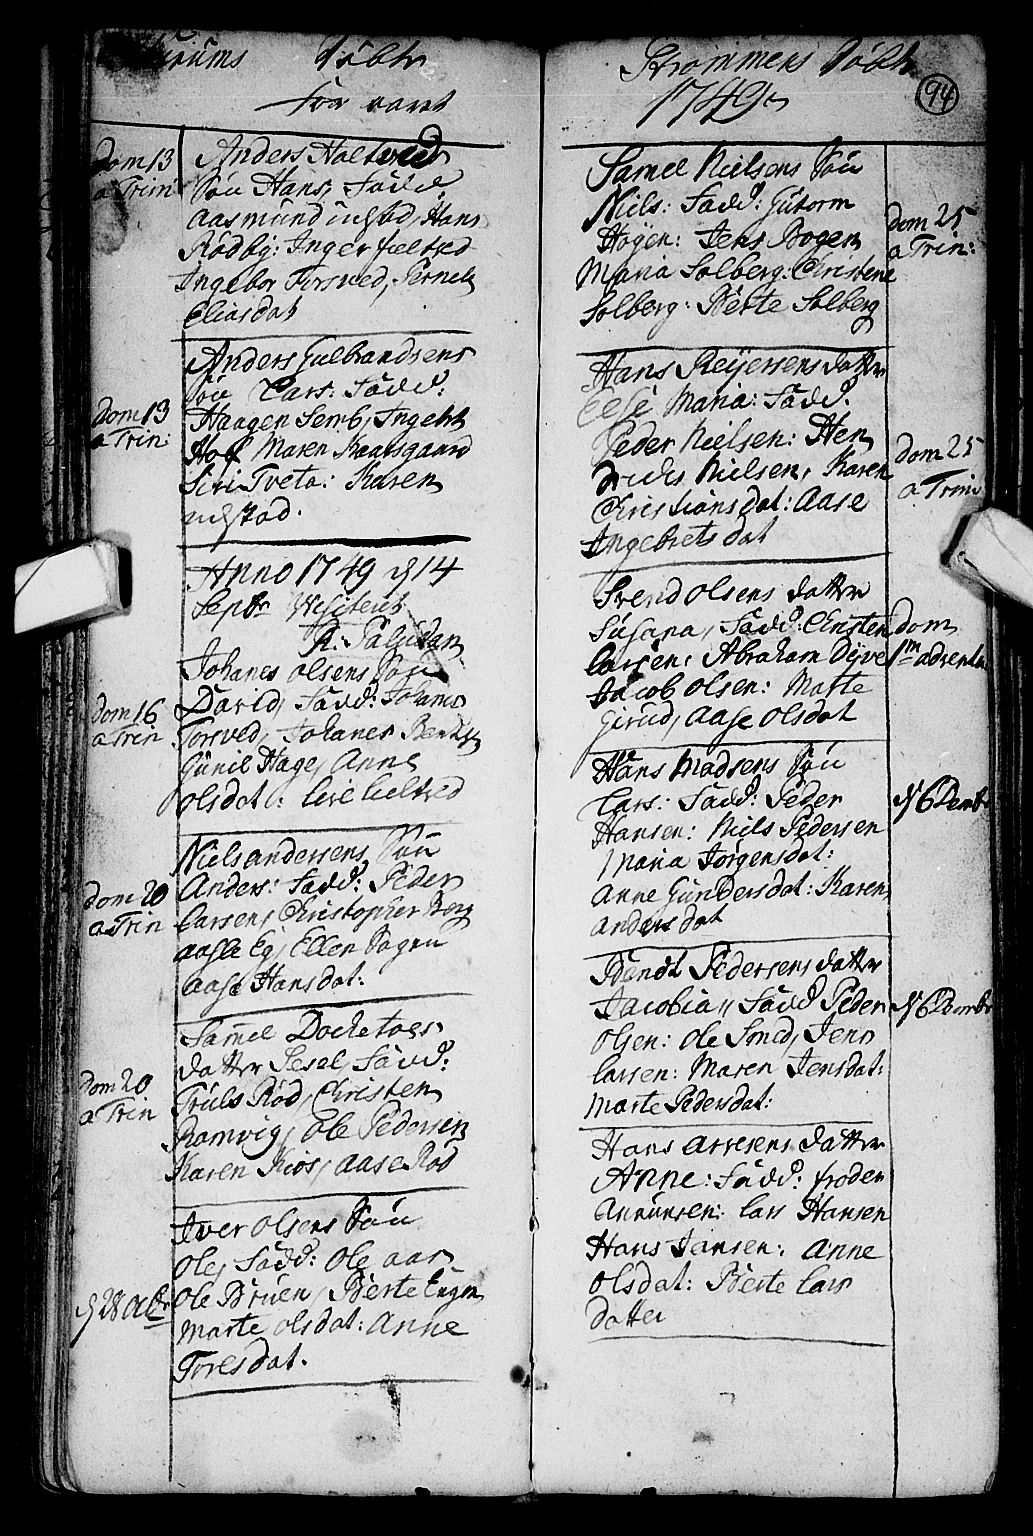 Døbte
for aaret
dom 13
a Trin
Anders Holtved
Søn Hans, Fadd
Aasmund
Rødby: Inger
Ingebor Torsved, Pernele
Eliasdat
dom 13
a Trin:
Anders Gulbrandsens
Søn Lars: Fadd:
Haagen Semb, Ingebr
Hof Maren Kaarsgaard
Siri Tveta: Karen
Anno 1749 d 14
Septbr Visiteret
R: Paludan
dom 16
a Trin
Johanes Olsens Søn
David, Fadd: Johanes
Torsved, Johanes
Gunil Hage, Anne
Olsdat:
dom 20
a Trin
Niels Andersens Søn
Anders: Fadd: Peder
Larsen, Christopher Berg
Aase Eg, Ellen Sogn
Aase Hansdat:
dom 20
a Trin
Samel
datter Sesel, Fadd:
Truls Rød, Christen
Ramvig, Ole Pedersen
Karen Kios, Aase Rød
d 28 Octbr
Iver Olsens Søn
Ole, Fadd: Ole Aas
Ole Bruen, Berte
Marte Olsdat: Anne
Toresdat.
Strømmens Døbte
1749
94
dom 25
a Trin:
Samel Nielsens Søn
Niels: Fadd: Gutorm
Høyen: Jens Bogen
Maria Solberg: Christene
Solberg: Berte Solberg
dom 25
a Trin
Hans Reijersens datter
Else Maria: Fadd:
Peder Nielsen: Hen
drich Nielsen, Karen
Christiansdat: Aase
Ingebretsdat
dom
1m advent
Svend Olsens datter
Susana, Fadd: Christen
Larsen, Abraham Dyve
Jacob Olsen: Marte
Girud, Aase Olsdat
d 6 Decembr
Hans Madsens Søn
Lars: Fadd: Peder
Hansen: Niels Pedersen
Maria Jørgensdat:
Anne Gundersdat: Karen
Andersdat
d 6 Decembr
Bendt Pedersens datter
Jacobia, Fadd Peder
Olsen: Ole Smed, Jens
Larsen: Maren Jensdat:
Marte Pedersdat:
Hans Arvesens datter
Anne: Fadd: Froder
Anunsen: Lars Hansen
Hans Jansen: Anne
Olsdat: Berte Lars
datter